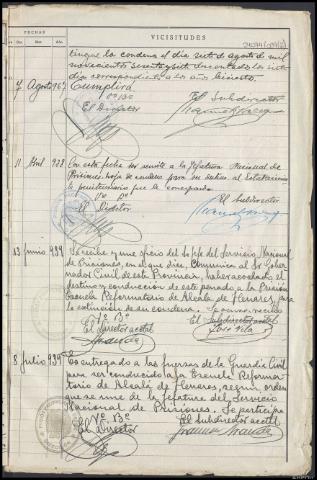 FECHAS
VICISITUDES
Día Mes Año
tingue la condena el día siete de agosto de mil
novecientos sesenta y siete descontado los siete
días correspondiente a los años bisiesto.
7 Agosto 967 Cumplirá
Vº Bº
El Director El Subdirector
11 Abril 938 Con esta fecha se remite a la Jefatura Nacional de
Prisiones hoja de condena para su destino al Establecimiento
penitenciario que le corresponda
Vº Bº El Subdirector
El Director
13 junio 939 Se recibe y une oficio del Sr Jefe del Servicio Nacional
de Prisiones, en el que dice, comunica al Sr Gober-
nador Civil de esta Provincia, haber acordado el
destino y conducción de este penado a la Prisión
Escuela Reformatorio de Alcalá de Henares, para
la extinción de su condena. Se acusa recibo
Vº Bº El Subdirector acctal
El Director acctal José Vila
8 Julio 939 Es entregado a las fuerzas de la Guardia Civil
para ser conducido a la Escuela Reforma-
torio de Alcalá de Henares, según orden
que se une de la Jefatura del Servicio
Nacional de Prisiones. Se participa
Vº Bº El Subdirector acctal
El Director